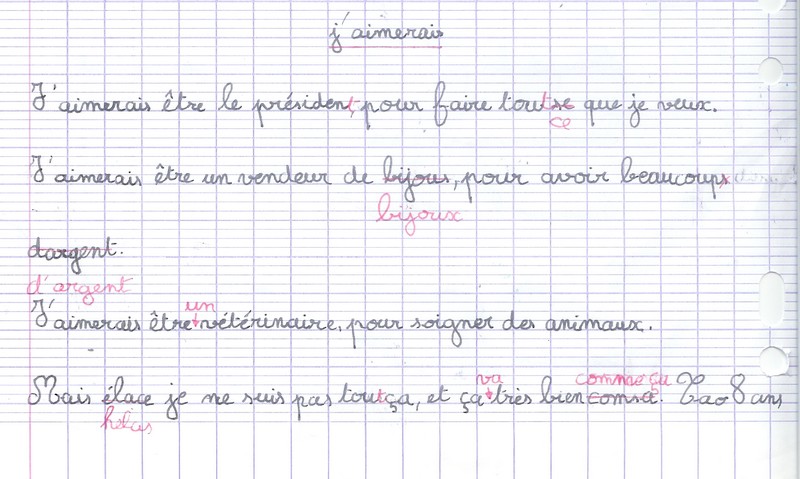 j'aimerais
J'aimerais être le président, pour faire tout se que je veux.
ce
J'aimerais être un vendeur de bijous, pour avoir beaucoup
bijoux
dargent.
d'argent
un
J'aimerais être vétérinaire, pour soigner des animaux.
va comme ça
Mais élace je ne suis pas tout ça, et ça très bien comsa. Tao 8 ans
helas